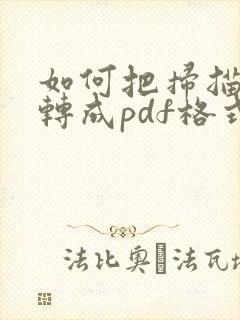 如何把掃描
轉成pdf格式
法比奧·法瓦